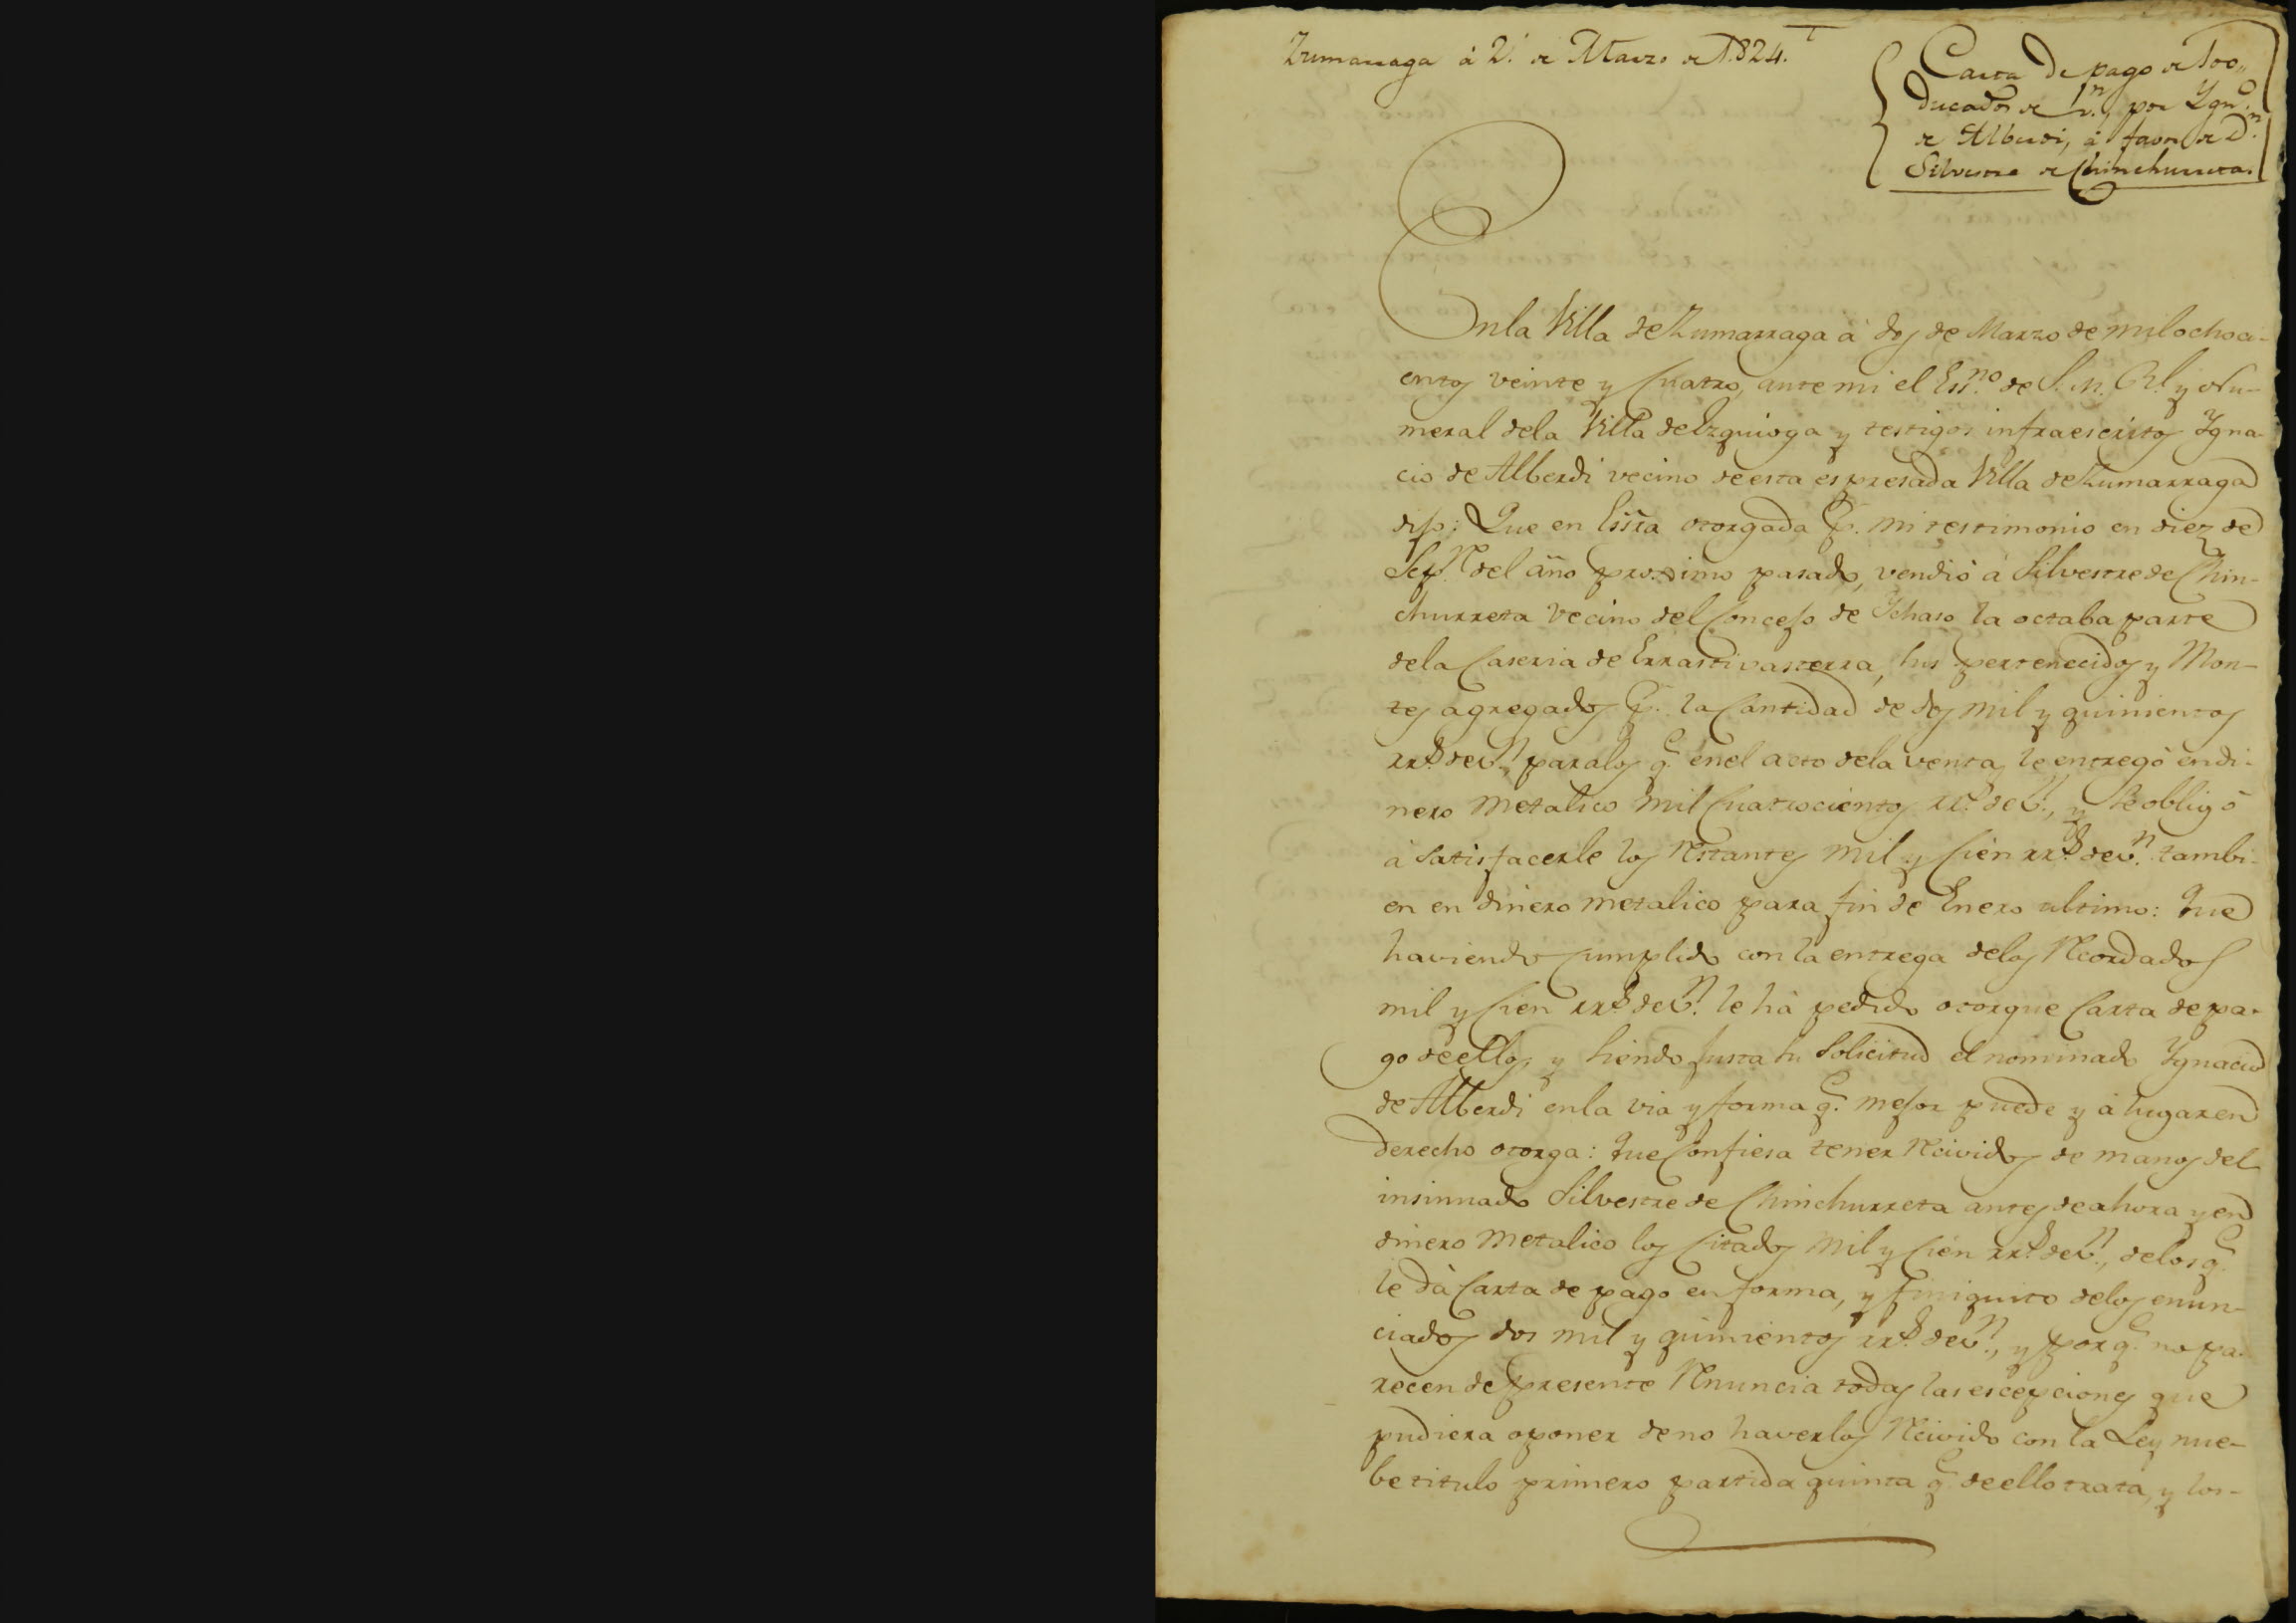 Zumarraga à 2. de Marzo de 1.824.
Carta de pago de 100,,
ducados de v.n, por Ygn.o
de Alberdi, à favor de D.n
Silvestre de Chinchurreta.
En la Villa de Zumarraga à dos de Marzo de mil ochoci-
entos veinte y Cuatro, ante mi el Ess.no de S. M. Rl. y Nu-
meral dela Villa de Ezquioga y testigos infraescritos Ygna-
cio de Alberdi vecino de esta espresada Villa de Zumarraga
dijo: Que en Essra otorgada p. mi testimonio en diez de
Sep.re del año proximo pasado, vendió à Silvestre de Chin-
churreta vecino del Concejo de Ichaso la octaba parte
dela Caseria de Errastivasterra, sus pertenecidos y Mon-
tes agregados p. la Cantidad de dos mil y quinientos
rr.s de v.n, para los q.e en el acto dela venta, le entregó en di-
nero metalico mil Cuatrocientos rr.s de v.n, y se obligó
à satisfacerle los restantes mil y Cien rr.s de v.n tambi-
en en dinero metalico para fin de Enero ultimo: que
haviendo Cumplido con la entrega delos recordados
mil y Cien rr.s de v.n le hà pedido otorgue Carta de pa-
go de ellos, y siendo justa su solicitud el nominado Ygnacio
de Alberdi en la via y forma q.e mejor puede y à lugar en
derecho otorga: que Confiesa tener recividos de manos del
insinuado Silvestre de Chinchurreta antes de ahora y en
dinero metalico los Citados mil y Cien rr.s de v.n, delos q.e
le dà Carta de pago en forma, y finiquito delos enun-
ciados dos mil y quinientos rr.s de v.n, y por q.e no pa-
recen de presente renuncia todas las escepciones que
pudiera oponer de no haverlos recivido con la Ley nue-
be titulo primero partida quinta q.e de ello trata, y los-